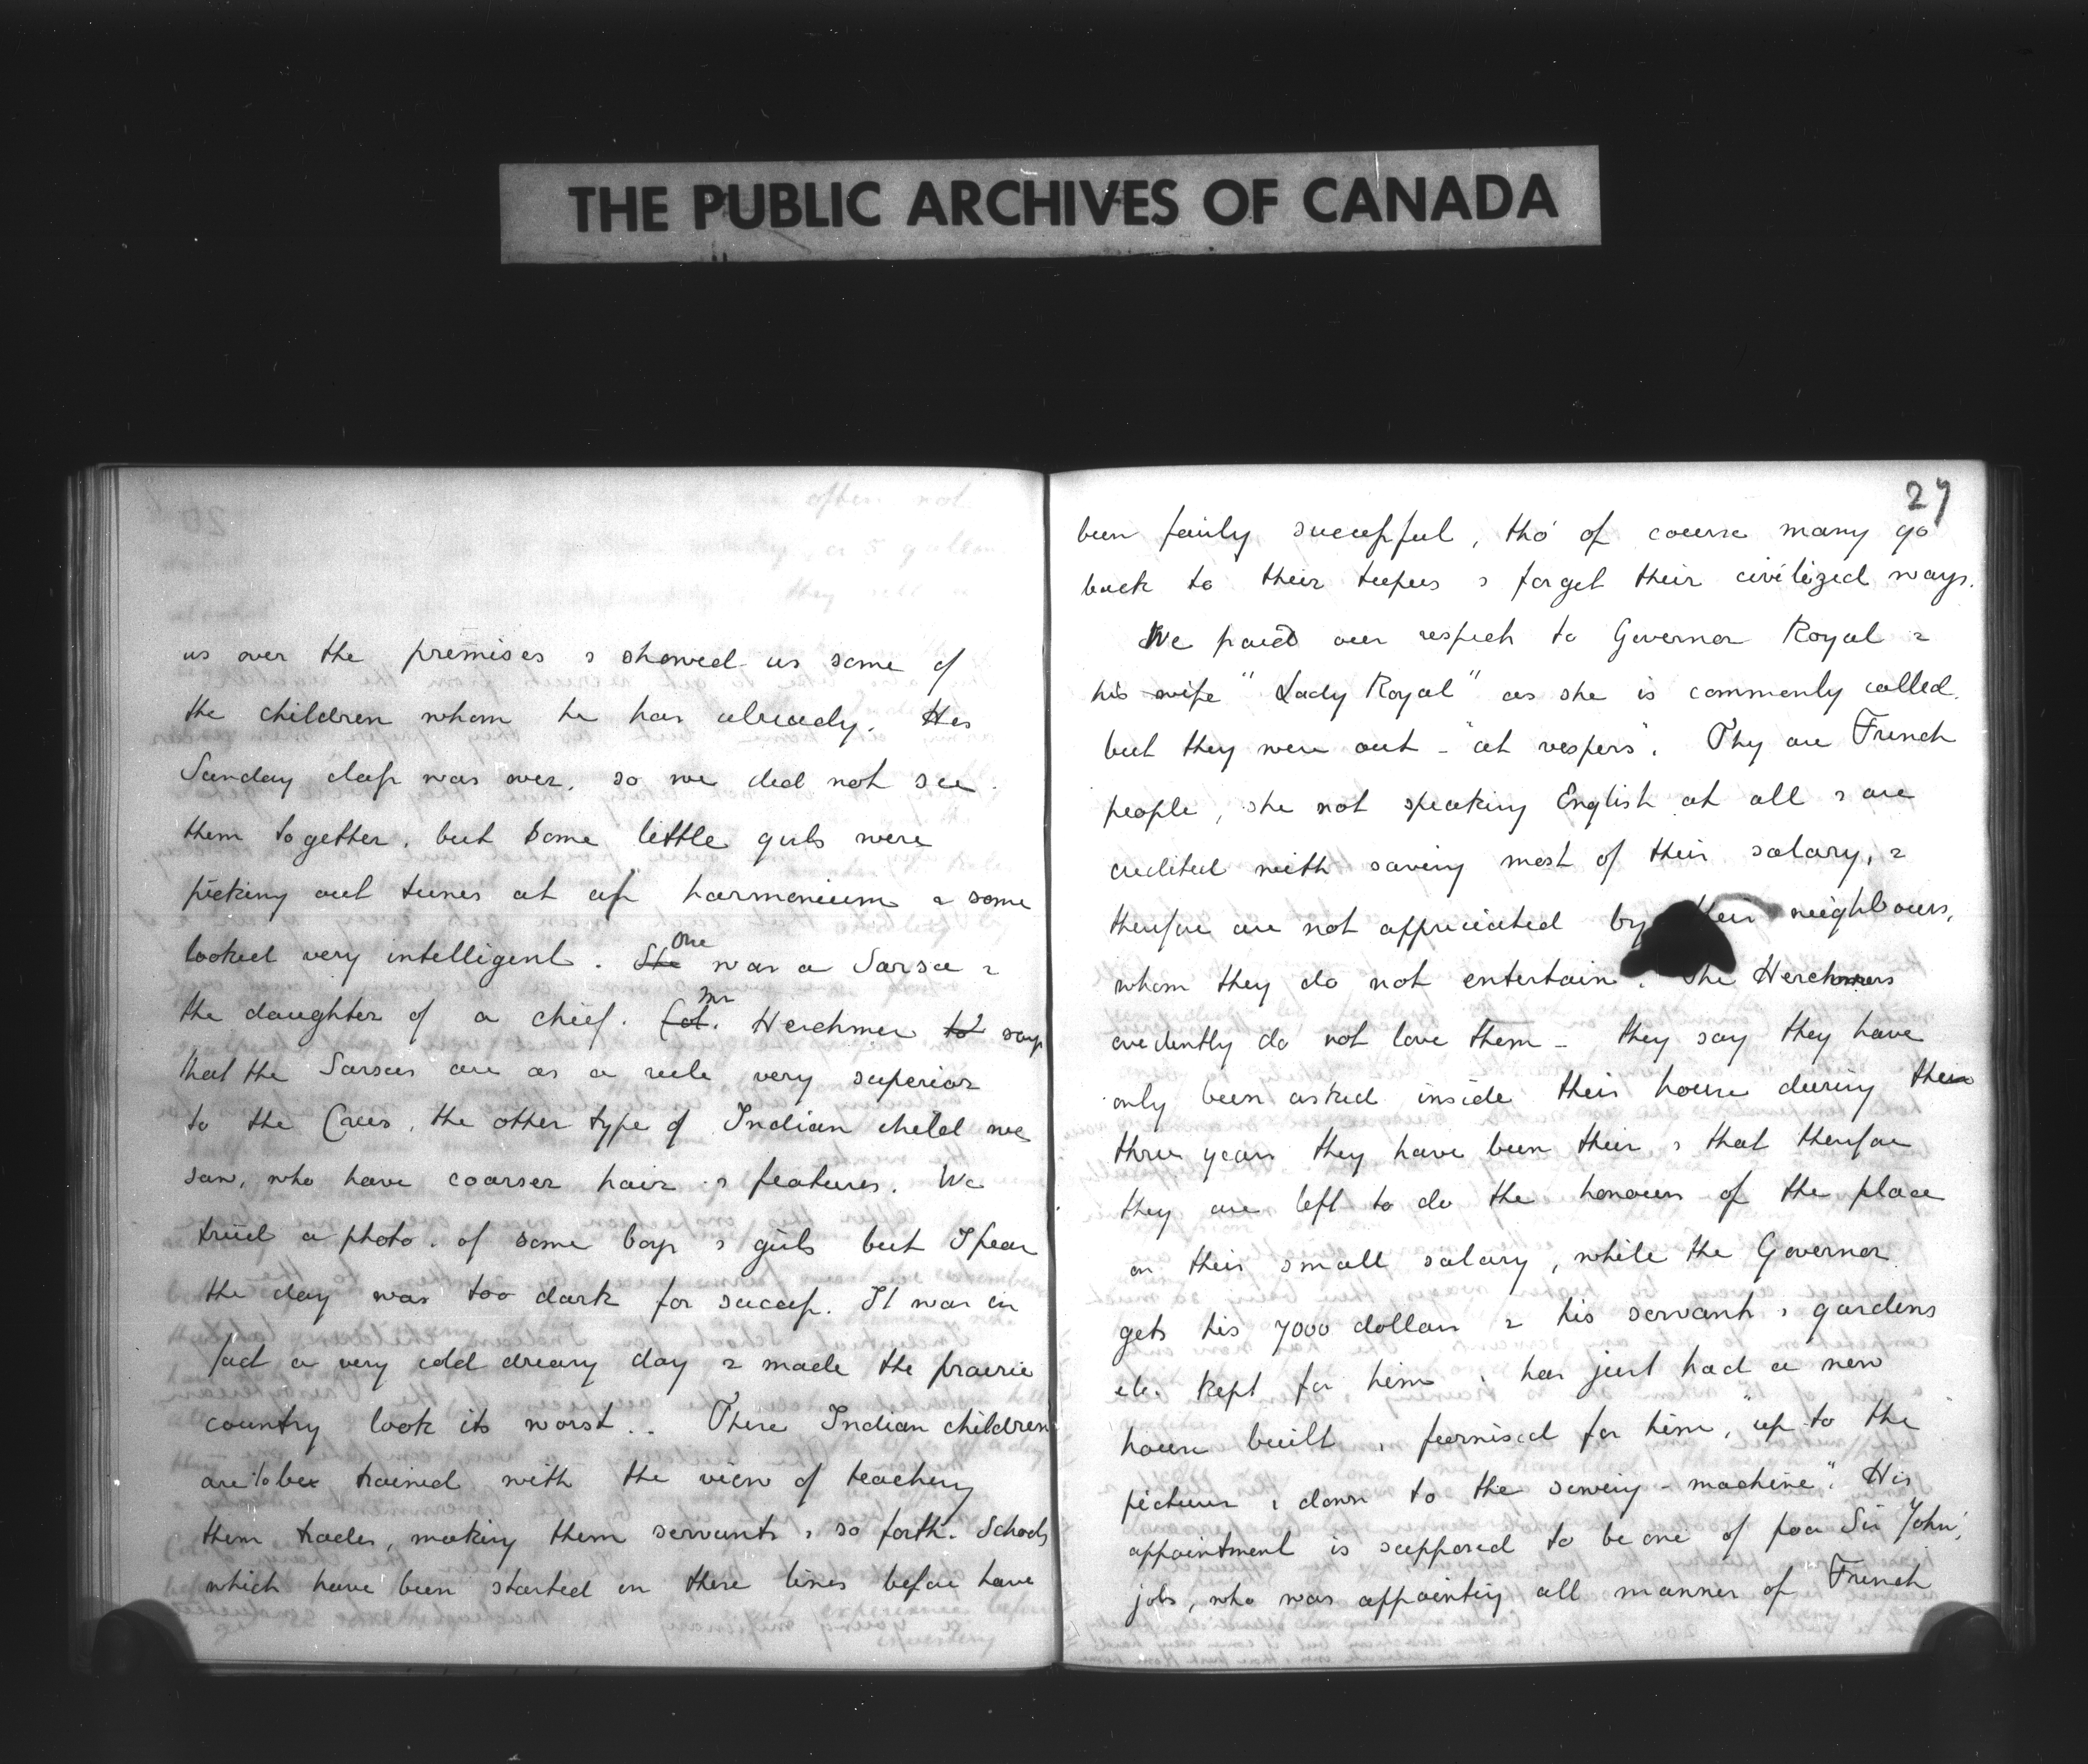 THE PUBLIC ARCHIVES OF CANADA
us over the premises & showed us some of
the children whom he has already. His
Sunday class was over, so we did not see
them together, but some little girls were
picking out tunes at a harmonium & some
looked very intelligent. She One was a Sarsee &
the daughter of a chief. Col. Mr Herchmer says
that the Sarsees are as a rule very superior
to the Crees, the other type of Indian child we
saw, who have coarser hair & features. We
tried a photo. of some boys & girls but I fear
the day was too dark for success. It was in
fact a very cold dreary day & made the prairie
country look its worst.. These Indian children
are to be trained with the view of teaching
them trades, making them servants & so forth. Schools
which have been started on these lines before have
27
been fairly successful, tho' of course many go
back to their teepees & forget their civilized ways.
We paid our respects to Governor Royal &
his wife "Lady Royal" as she is commonly called,
but they were out - "at vespers". They are French
people, she not speaking English at all & are
credited with saving most of their salary, &
therefore are not appreciated by their neighbours,
whom they do not entertain. The Herchmers
evidently do not love them - they say they have
only been asked inside their house during the
three years they have been their & that therefore
they are left to do the honours of the place
on their small salary, while the Governor
gets his 7000 dollars & his servants & gardens
etc. kept for him & has just had a new
house built & furnised for him, "up to the
pictures & down to the sewing-machine". His
appointment is supposed to be one of poor Sir John's
jobs, who was appointing all manner of French